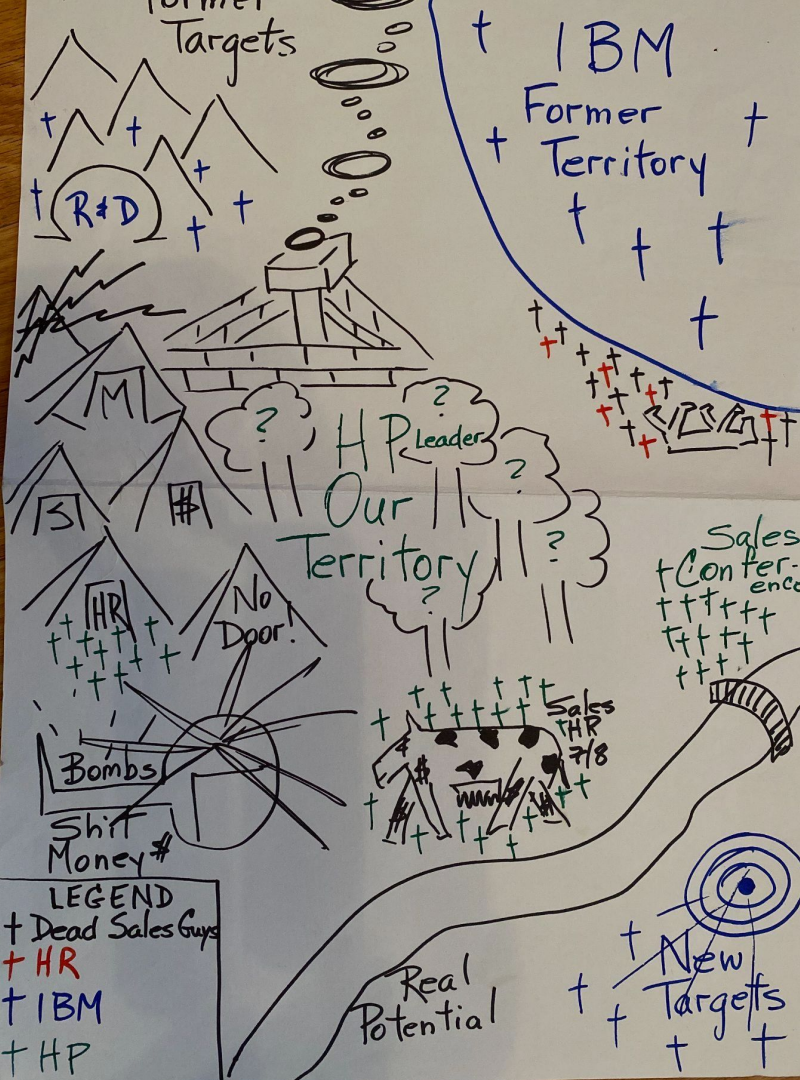 Former
Targets
IBM
Former
Territory
R&D
M
?
?
HP
Leader
?
Our
$
?
Territory
?
Sales
Confer-
ence
HR
No
Door!
Sales
HR
7/8
$
$
$
Bombs
Shit
Money $
LEGEND
Dead Sales Guys
HR
IBM
HP
Real
Potential
New
Targets